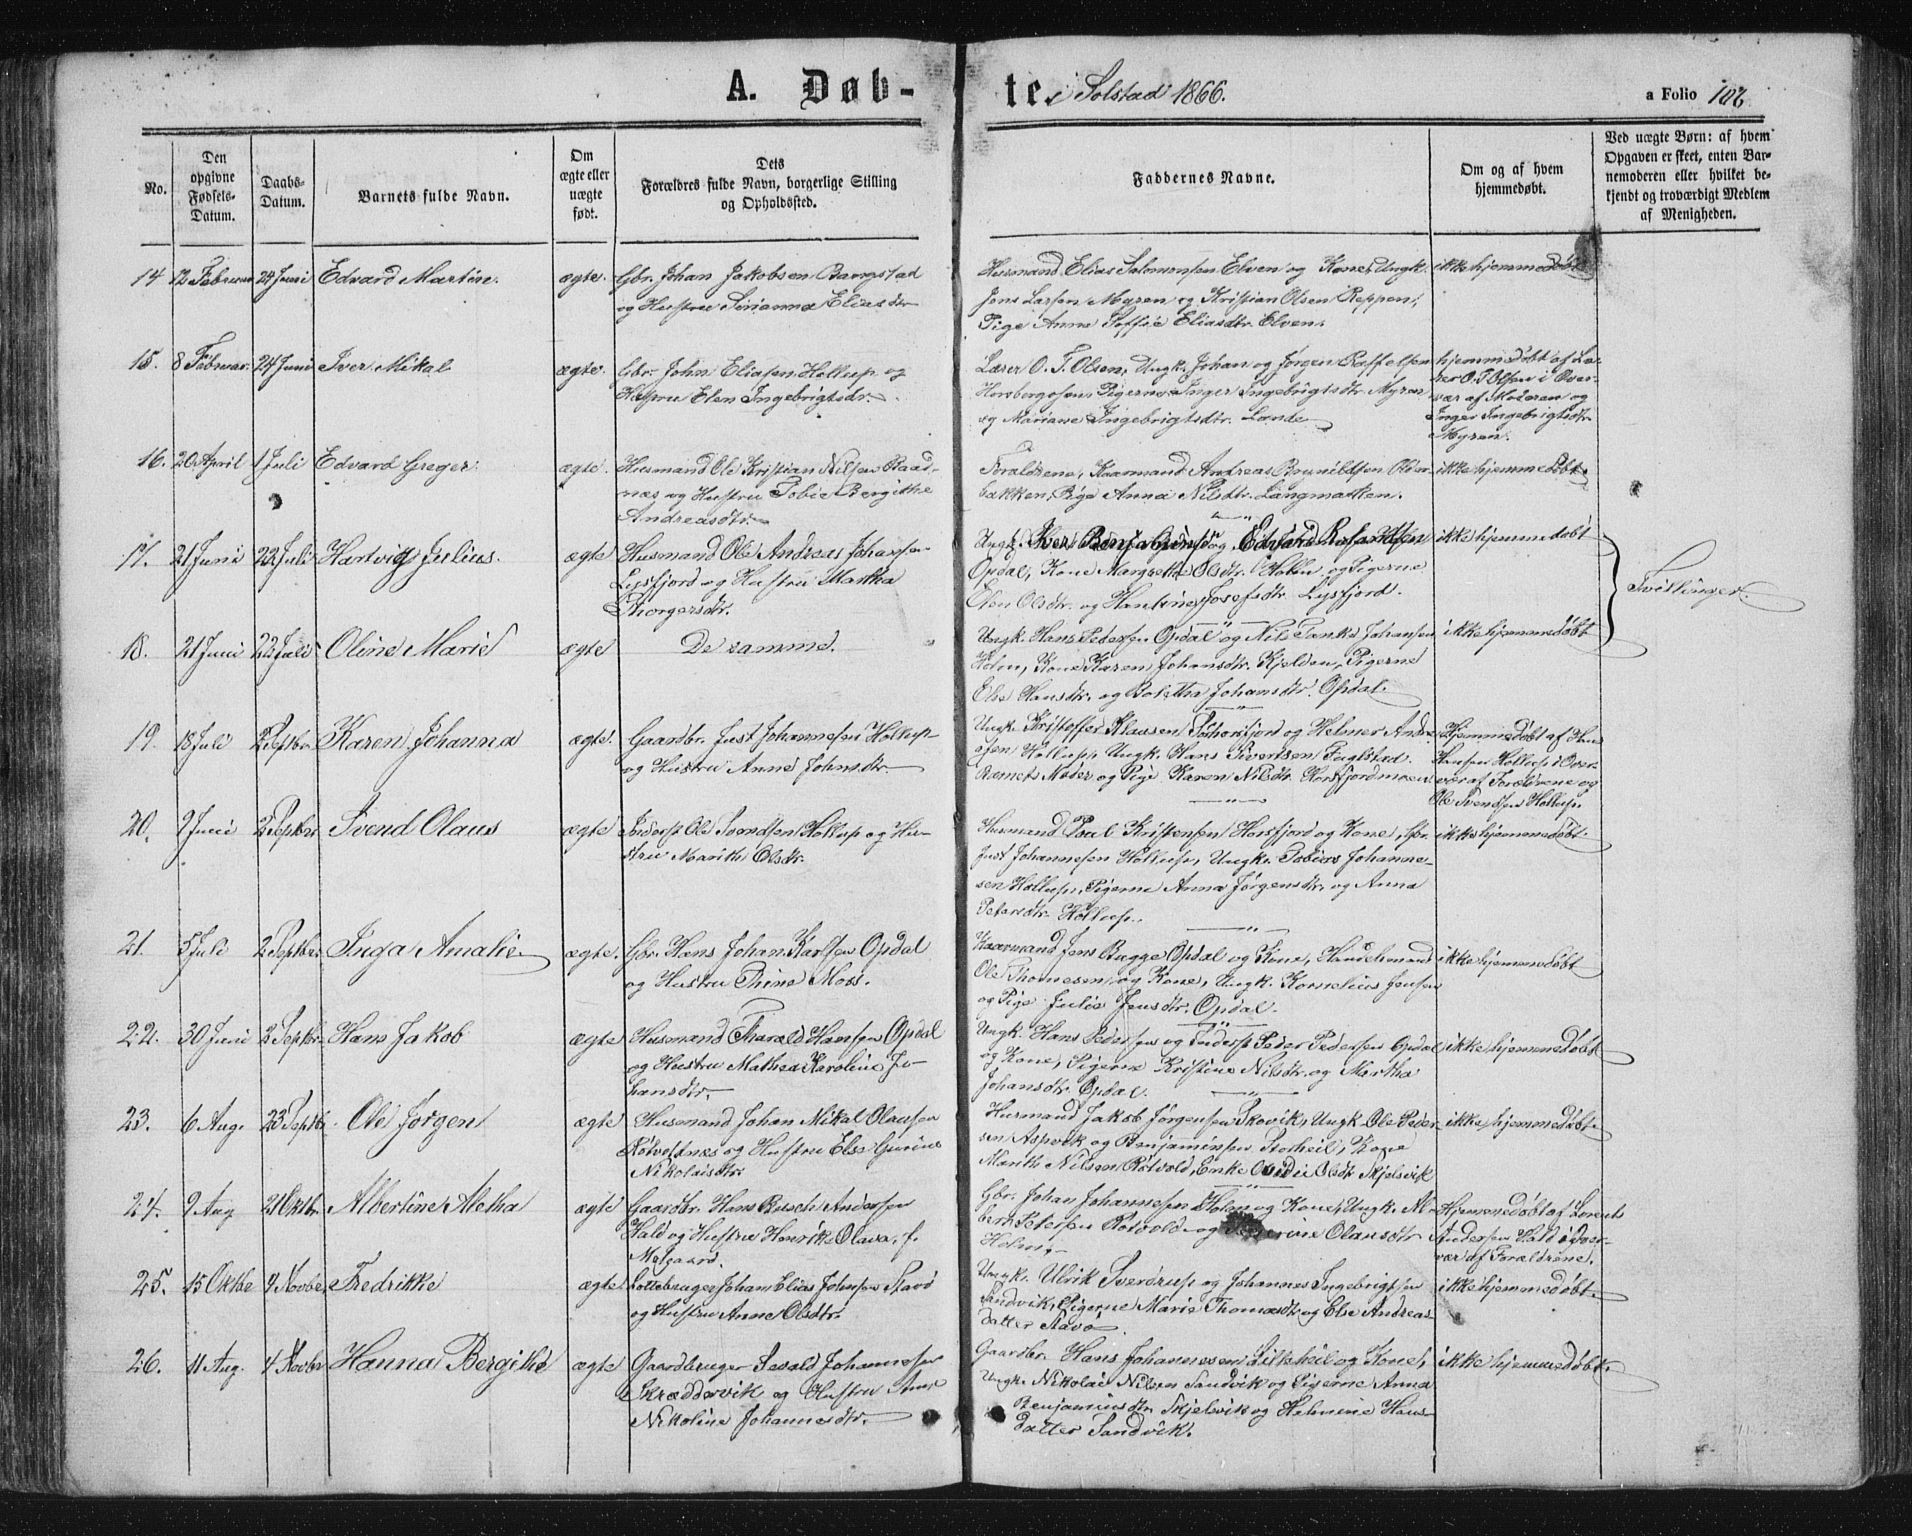 A. Døbte i Solstad 1866.
a Folio 106
No.
Den opgivne Fødsels-Datum.
Daabs-Datum.
Barnets fulde Navn.
Om ægte eller uægte født.
Dets Forældres fulde Navn, borgerlige Stilling og Opholdssted.
Faddernes Navne.
Om og af hvem hjemmedøbt.
Ved uægte Børn: af hvem Opgaven er skeet, enten Barnemoderen eller hvilket bekjendt og troværdigt Medlem af Menigheden.
14 12 Februar 24 Juni Edvard Martin. ægte. Gbr. Johan Jakobsen Bangstad
og Hustru Serianna Eliasdtr
Husmand Elias Salomonsen Elven og Kone, Ungk.
Jens Larsen Myren og Kristian Olsen Reppen,
Pige Anne Soffie Eliasdtr. Elven.
ikke hjemmedøbt
15. 8 Februar. 24 Juni Iver Mikal ægte. Gbr. John Eliasen Hollup og
Hustru Elen Ingebrigtsdtr.
Lærer O. T. Olsen, Ungk. Johan og Jørgen Raffelsen
Pigerne Inger Ingebrigtsdtr. Myren
og Mariane Ingebrigtsdtr. Lande
hjemmedøbt af Læ-
rer O. T. Olsen i Over-
vær af Moderen og
Inger Ingebrigtsdtr.
Myren.
16. 20 April 1 Juli Edvard Greger ægte. Husmand Ole Kristian Nilsen Raad-
næs og Hustru Tobie Bergitthe
Andreasdtr.
Forældrene, Kaarmand Andreas Older-
bakken, Pige Anna Nilsdtr. Langmarken.
ikke hjemmedøbt
17. 21 Juni 22 Juli Hartvig Julius. ægte Husmand Ole Andreas Johansen
Lysfjord og Hustru Martha
Thorgersdtr.
Ungk. Iver Benjaminsen og Edvard
Opdal, Kone Margrethe Olsdtr. Holm og Pigerne
Elen Olsdtr. og Hantine Josefsdtr. Lysfjord.
ikke hjemmedøbt
Tvillinger.
18. 21 Juni 22 Juli Oline Marie ægte De samme.
Ungk. Hans Pedersen Opdal og Nils Tanke Johansen
Holm, Kone Karen Johansdtr. Kjelden, Pigerne
Else Hansdtr. og Bolettha Johansdtr. Opdal.
ikke hjemmedøbt
19. 18 Juli 2 Septbr. Karen Johanna ægte. Gaardbr. Just Johannesen Hollup
og Hustru Anne Johnsdtr.
Ungk. Kristoffer Klausen og Helmer Andre-
asen Hollup, Ungk. Hans Sivertsen Fuglstad.
Barnets Moder og Pige Karen Nilsdtr. Horsfjordmoen
Hjemmedøbt af Hans
Hansen Hollup i Over-
vær af Forældrene og
Ole Svendsen Hollup.
20. 9 Juni 2 Septbr Svend Olaus ægte Inderst Ole Svendsen Hollup og Hu-
stru Marith Olsdtr.
Husmand Paal Kristensen Horsfjord og Kone, Gbr.
Just Johannesen Hollup, Ungk. Tobias Johanne-
sen Hollup, Pigerne Anna Jørgensdtr. og Anna
Petersdtr. Hollup.
ikke hjemmedøbt.
21. 5 Juli 2 Septbr. Inga Amalie ægte. Gbr. Hans Johan Karlsen Opdal
og Hustru Thine Moss.
Kaarmand Jens Bugge Opdal og Kone, Handelsmand
Ole Thomesen og Kone, Ungk. Kornelius Jensen
og Pige Julie Jensdtr. Opdal.
ikke hjemmedøbt
22. 30 Juni 2 Septbr. Hans Jakob ægte Husmand Tharald Hansen Opdal
og Hustru Mathea Karoline Jo-
hansdtr.
Ungk. Hans Pedersen og Inderst Peder Pedersen Opdal
og Kone, Pigerne Kristine Nilsdtr. og Martha
Johansdtr. Opdal.
ikke hjemmedøbt
23. 6 Aug. 23 Septbr. Ole Jørgen ægte Husmand Johan Mikal Olausen
Røtvoldnæs og Hustru Else Gurine
Nikolaisdtr.
Husmand Jakob Jørgensen Skovik, Ungk. Ole Peder-
sen Aspvik og Benjaminsen Storheil, Kone
Marith Nilsen Røtvold, Enke Olsdtr. Skjelsvik
ikke hjemmedøbt.
24. 9 Aug 21 Oktbr. Albertine Aletha ægte Gaardbr. Hans Busch Andersen
Hald og Hustru Henrikke Olava, f.
Molgaard.
Gbr. Johan Johannesen Holm og Kone, Ungk. Al-
bert Petersen Røtvold og Olausdtr
Holm.
Hjemmedøbt af Lorents
Andersen Hald i Over-
vær af Forældrene.
25. 15 Oktbr 4 Novbr. Fredrikke ægte Pottebruger Johan Elias Johnsen Stavø
og Hustru Anne Olsdtr.
Ungk. Ulrik Sverdrup og Johannes Ingebrigtsen
Sandvik, Pigerne Marie Thomasdtr. og Else Andreas
datter Stavø.
ikke hjemmedøbt.
26. 11 Aug. 4 Novbr Hanna Bergithe ægte Gaardbruger Sevald Johannesen
Skreddervik og Hustru Ane
Nikoline Johannesdtr.
Gaardbr. Hans Johannesen Litleheil og Kone,
Ungk. Nikolai Nilsen Sandvik og Pigerne Anna
Benjaminsdtr. Skjelsvik og Helmine Hans-
datter Sandvik.
ikke hjemmedøbt.